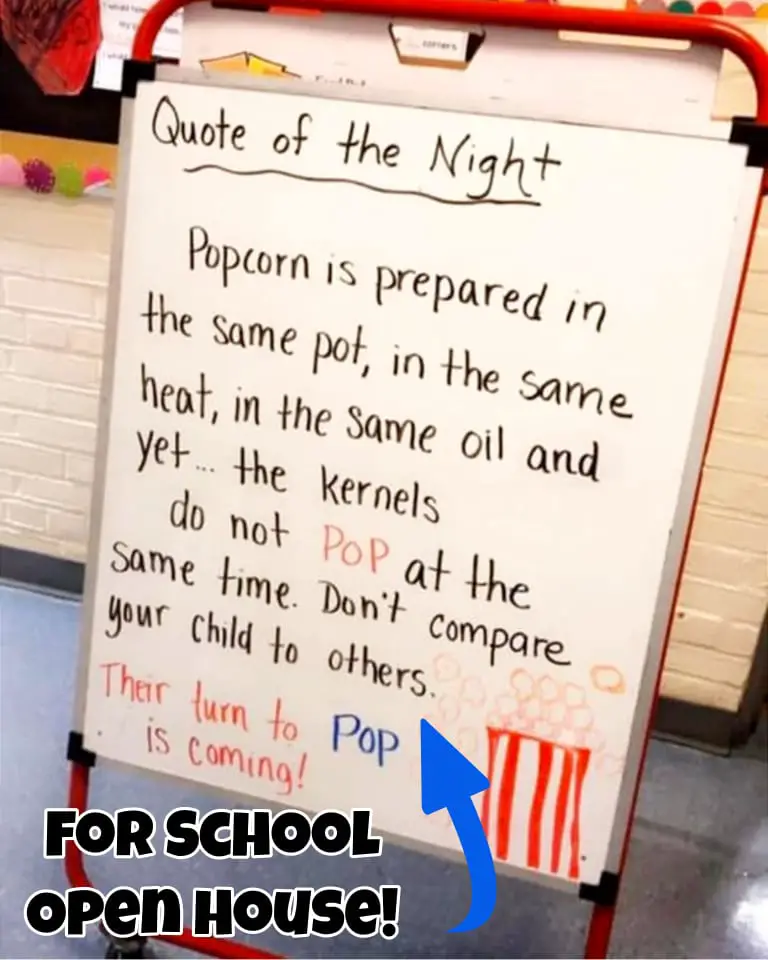 corners
Quote of the Night
Popcorn is prepared in
the same pot, in the same
heat, in the same oil and
yet... the kernels
do not POP at the
same time. Don't compare
your child to others.
Their turn to Pop
is coming!
FOR SCHOOL
OPEN HOUSE!